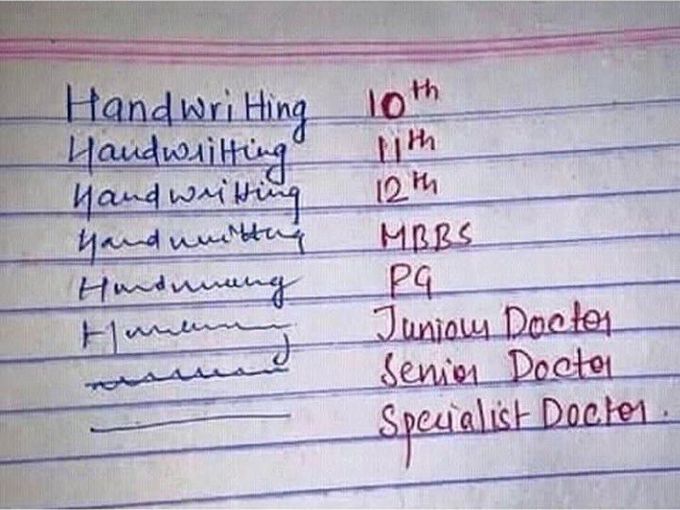 Handwritting 10th
Handwritting 11th
Handwritting 12th
Handwritting MBBS
PG
Juniour Doctor
Senior Doctor
Specialist Doctor.